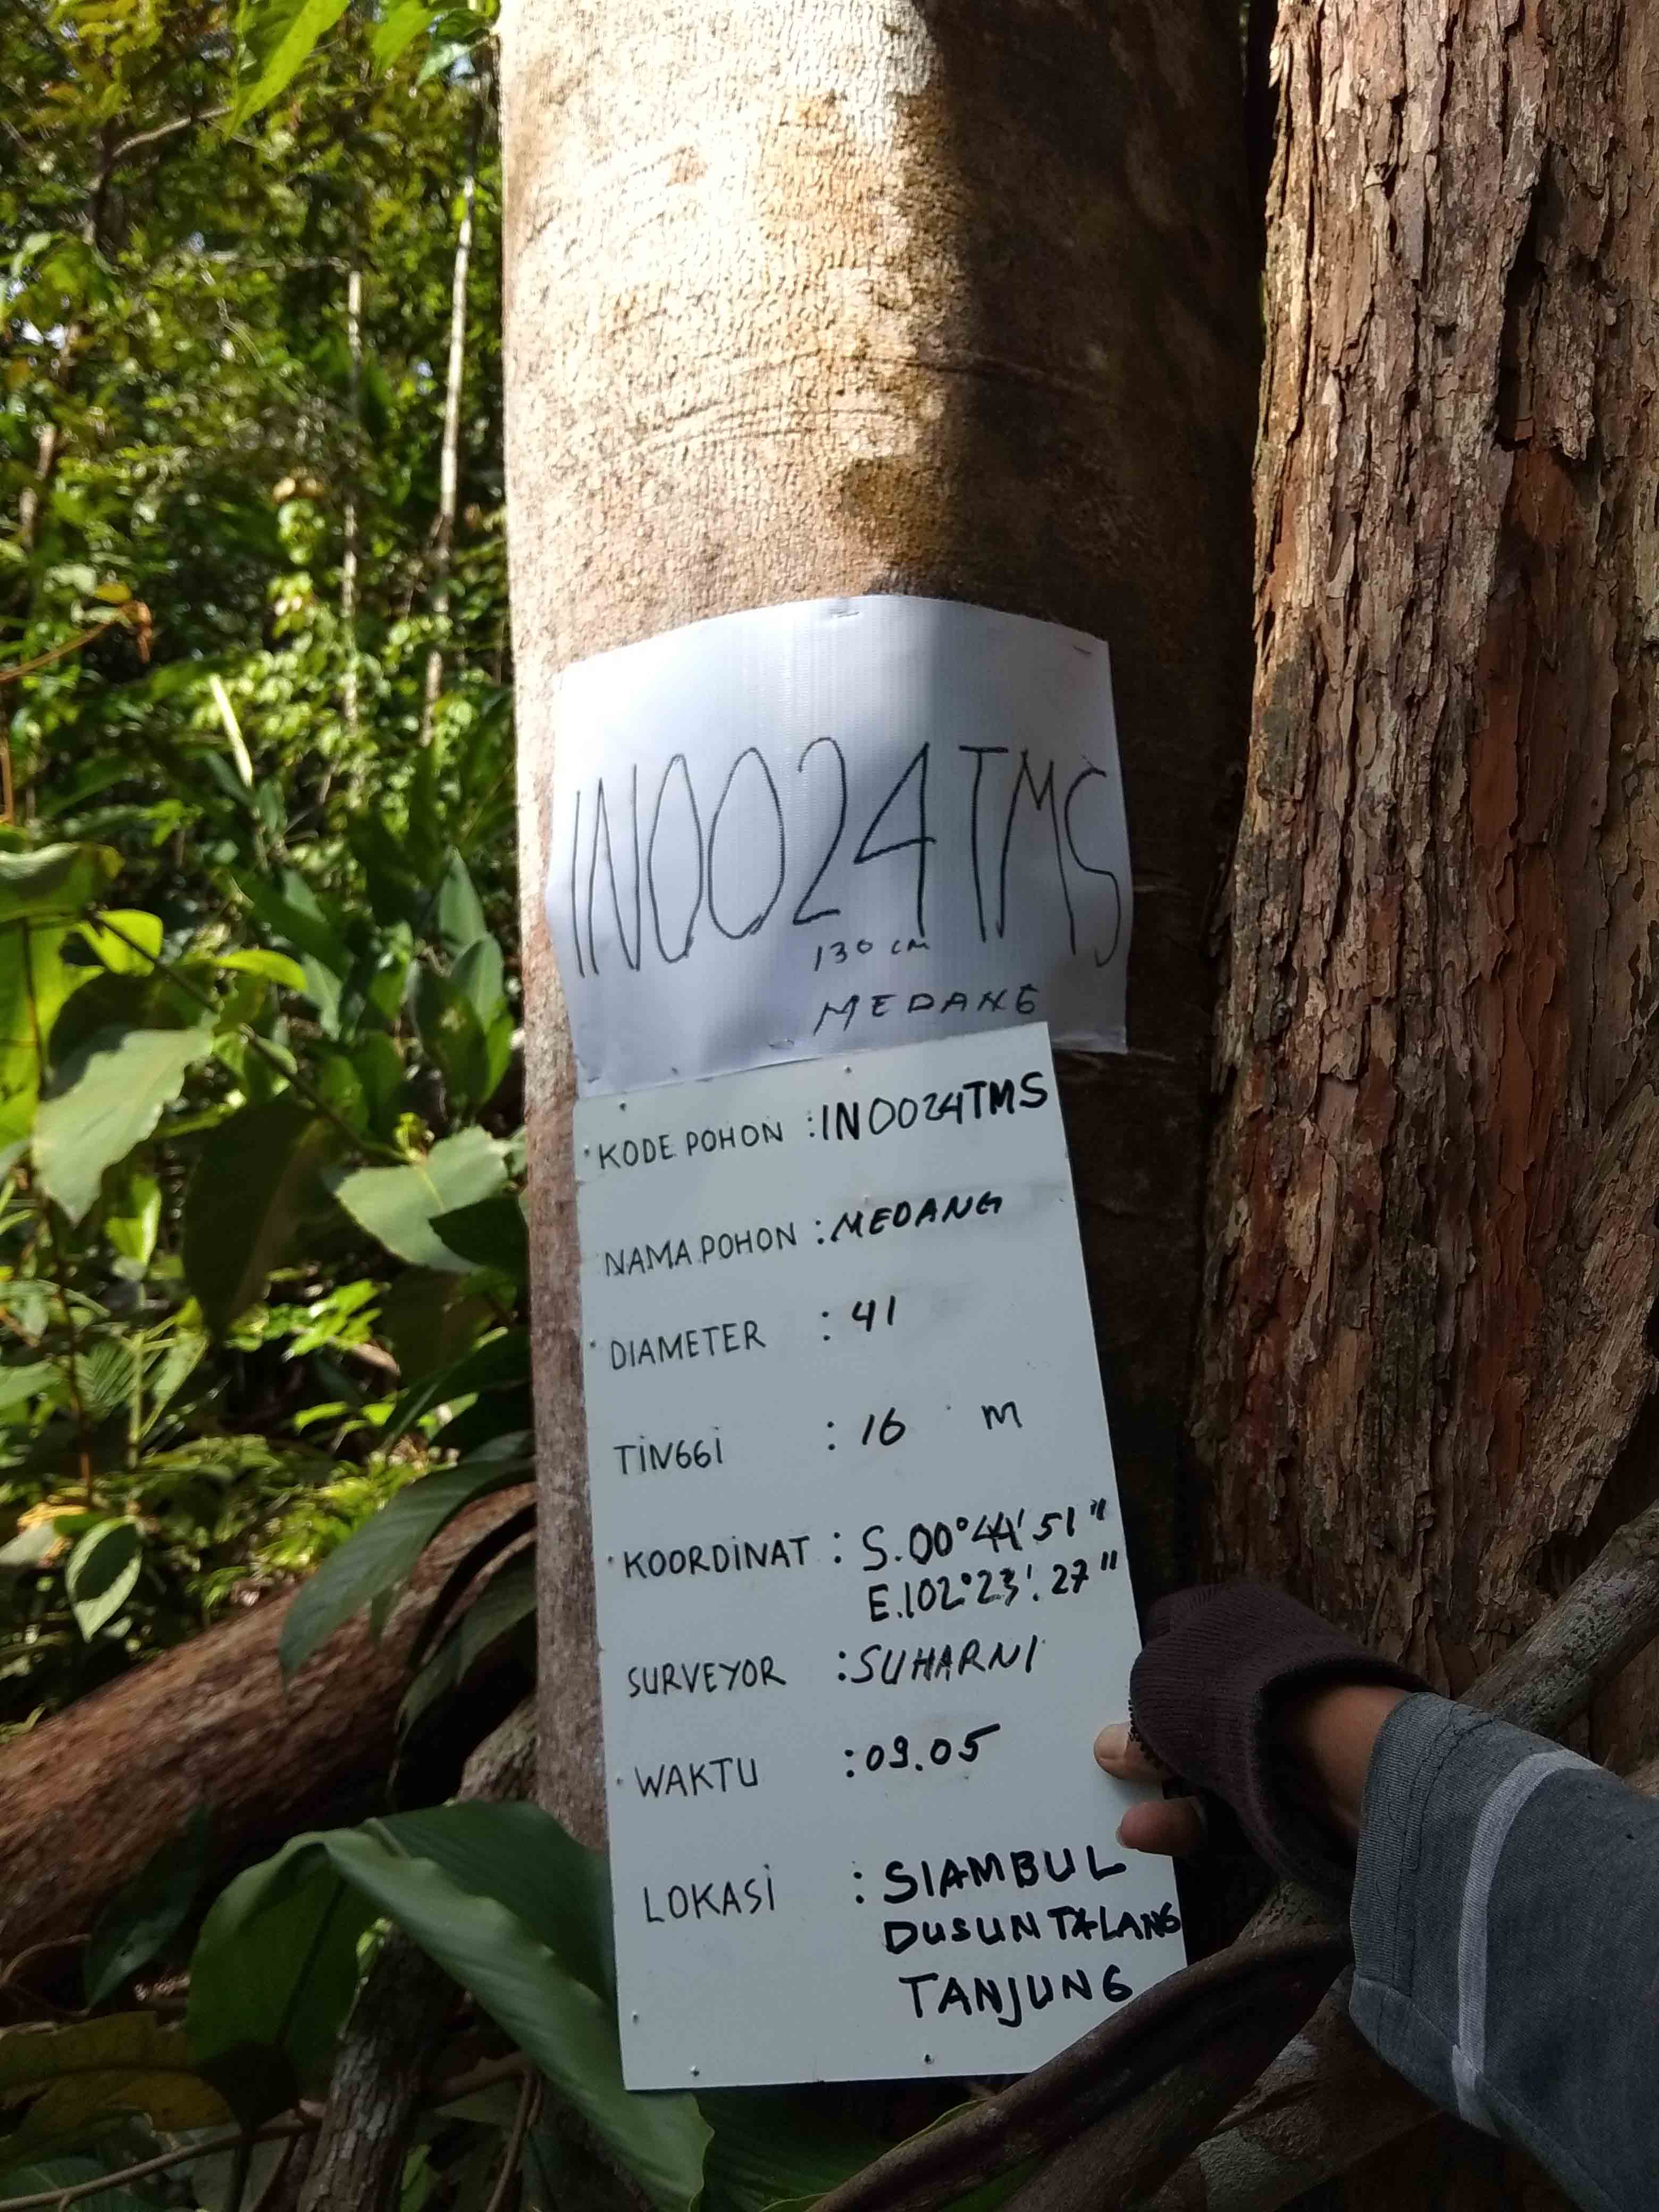 IN0024TMS
130 cm
MEDANG
KODE POHON : IN0024TMS
NAMA POHON : MEDANG
DIAMETER : 41
TINGGI : 16 M
KOORDINAT : S.00°44'51"
E.102°23'.27"
SURVEYOR : SUHARNI
WAKTU : 09.05
LOKASI : SIAMBUL
DUSUN TALANG
TANJUNG